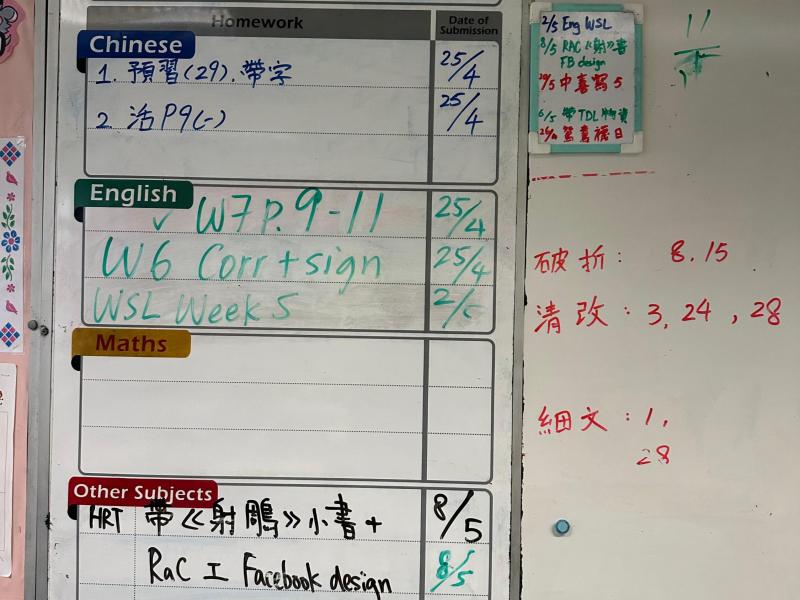 Homework
Date of Submission
Chinese
1. 預習(29). 帶字 25/4
2. 活P9(一) 25/4
English
✓ W7 P. 9-11 25/4
W6 Corr + sign 25/4
WSL Week 5 2/5
Maths
Other Subjects
HRT 帶《射鵰》小書 + 8/5
RaC 工 Facebook design 8/5
2/5 Eng WSL
8/5 RAC《射》書
FB design
中書寫 5
6/5 帶TDL物資
日
11
破折: 8.15
清改: 3, 24, 28
細文: 1,
28